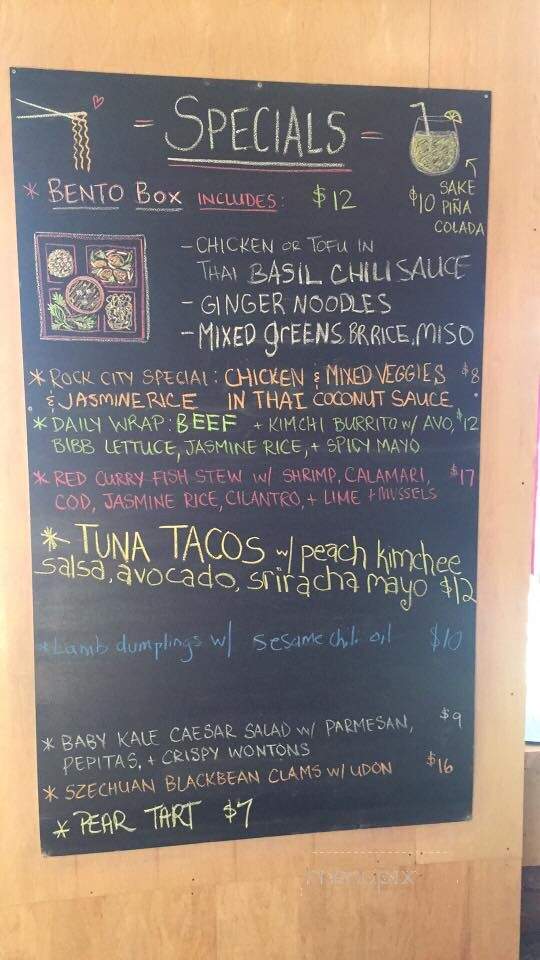 = SPECIALS =
* BENTO BOX INCLUDES: $12
$10 SAKE
PIÑA
COLADA
- CHICKEN OR TOFU IN
THAI BASIL CHILI SAUCE
- GINGER NOODLES
- MIXED GREENS, BR RICE, MISO
* ROCK CITY SPECIAL: CHICKEN & MIXED VEGGIES $8
& JASMINE RICE IN THAI COCONUT SAUCE
* DAILY WRAP: BEEF + KIMCHI BURRITO W/ AVO, $12
BIBB LETTUCE, JASMINE RICE, + SPICY MAYO
* RED CURRY FISH STEW W/ SHRIMP, CALAMARI, $17
COD, JASMINE RICE, CILANTRO, + LIME + MUSSELS
* TUNA TACOS w/ peach kimchee
salsa, avocado, sriracha mayo $12
* Lamb dumplings w/ sesame chili oil $10
* BABY KALE CAESAR SALAD W/ PARMESAN, $9
PEPITAS, + CRISPY WONTONS
* SZECHUAN BLACKBEAN CLAMS W/ UDON $16
* PEAR TART $7
menupix